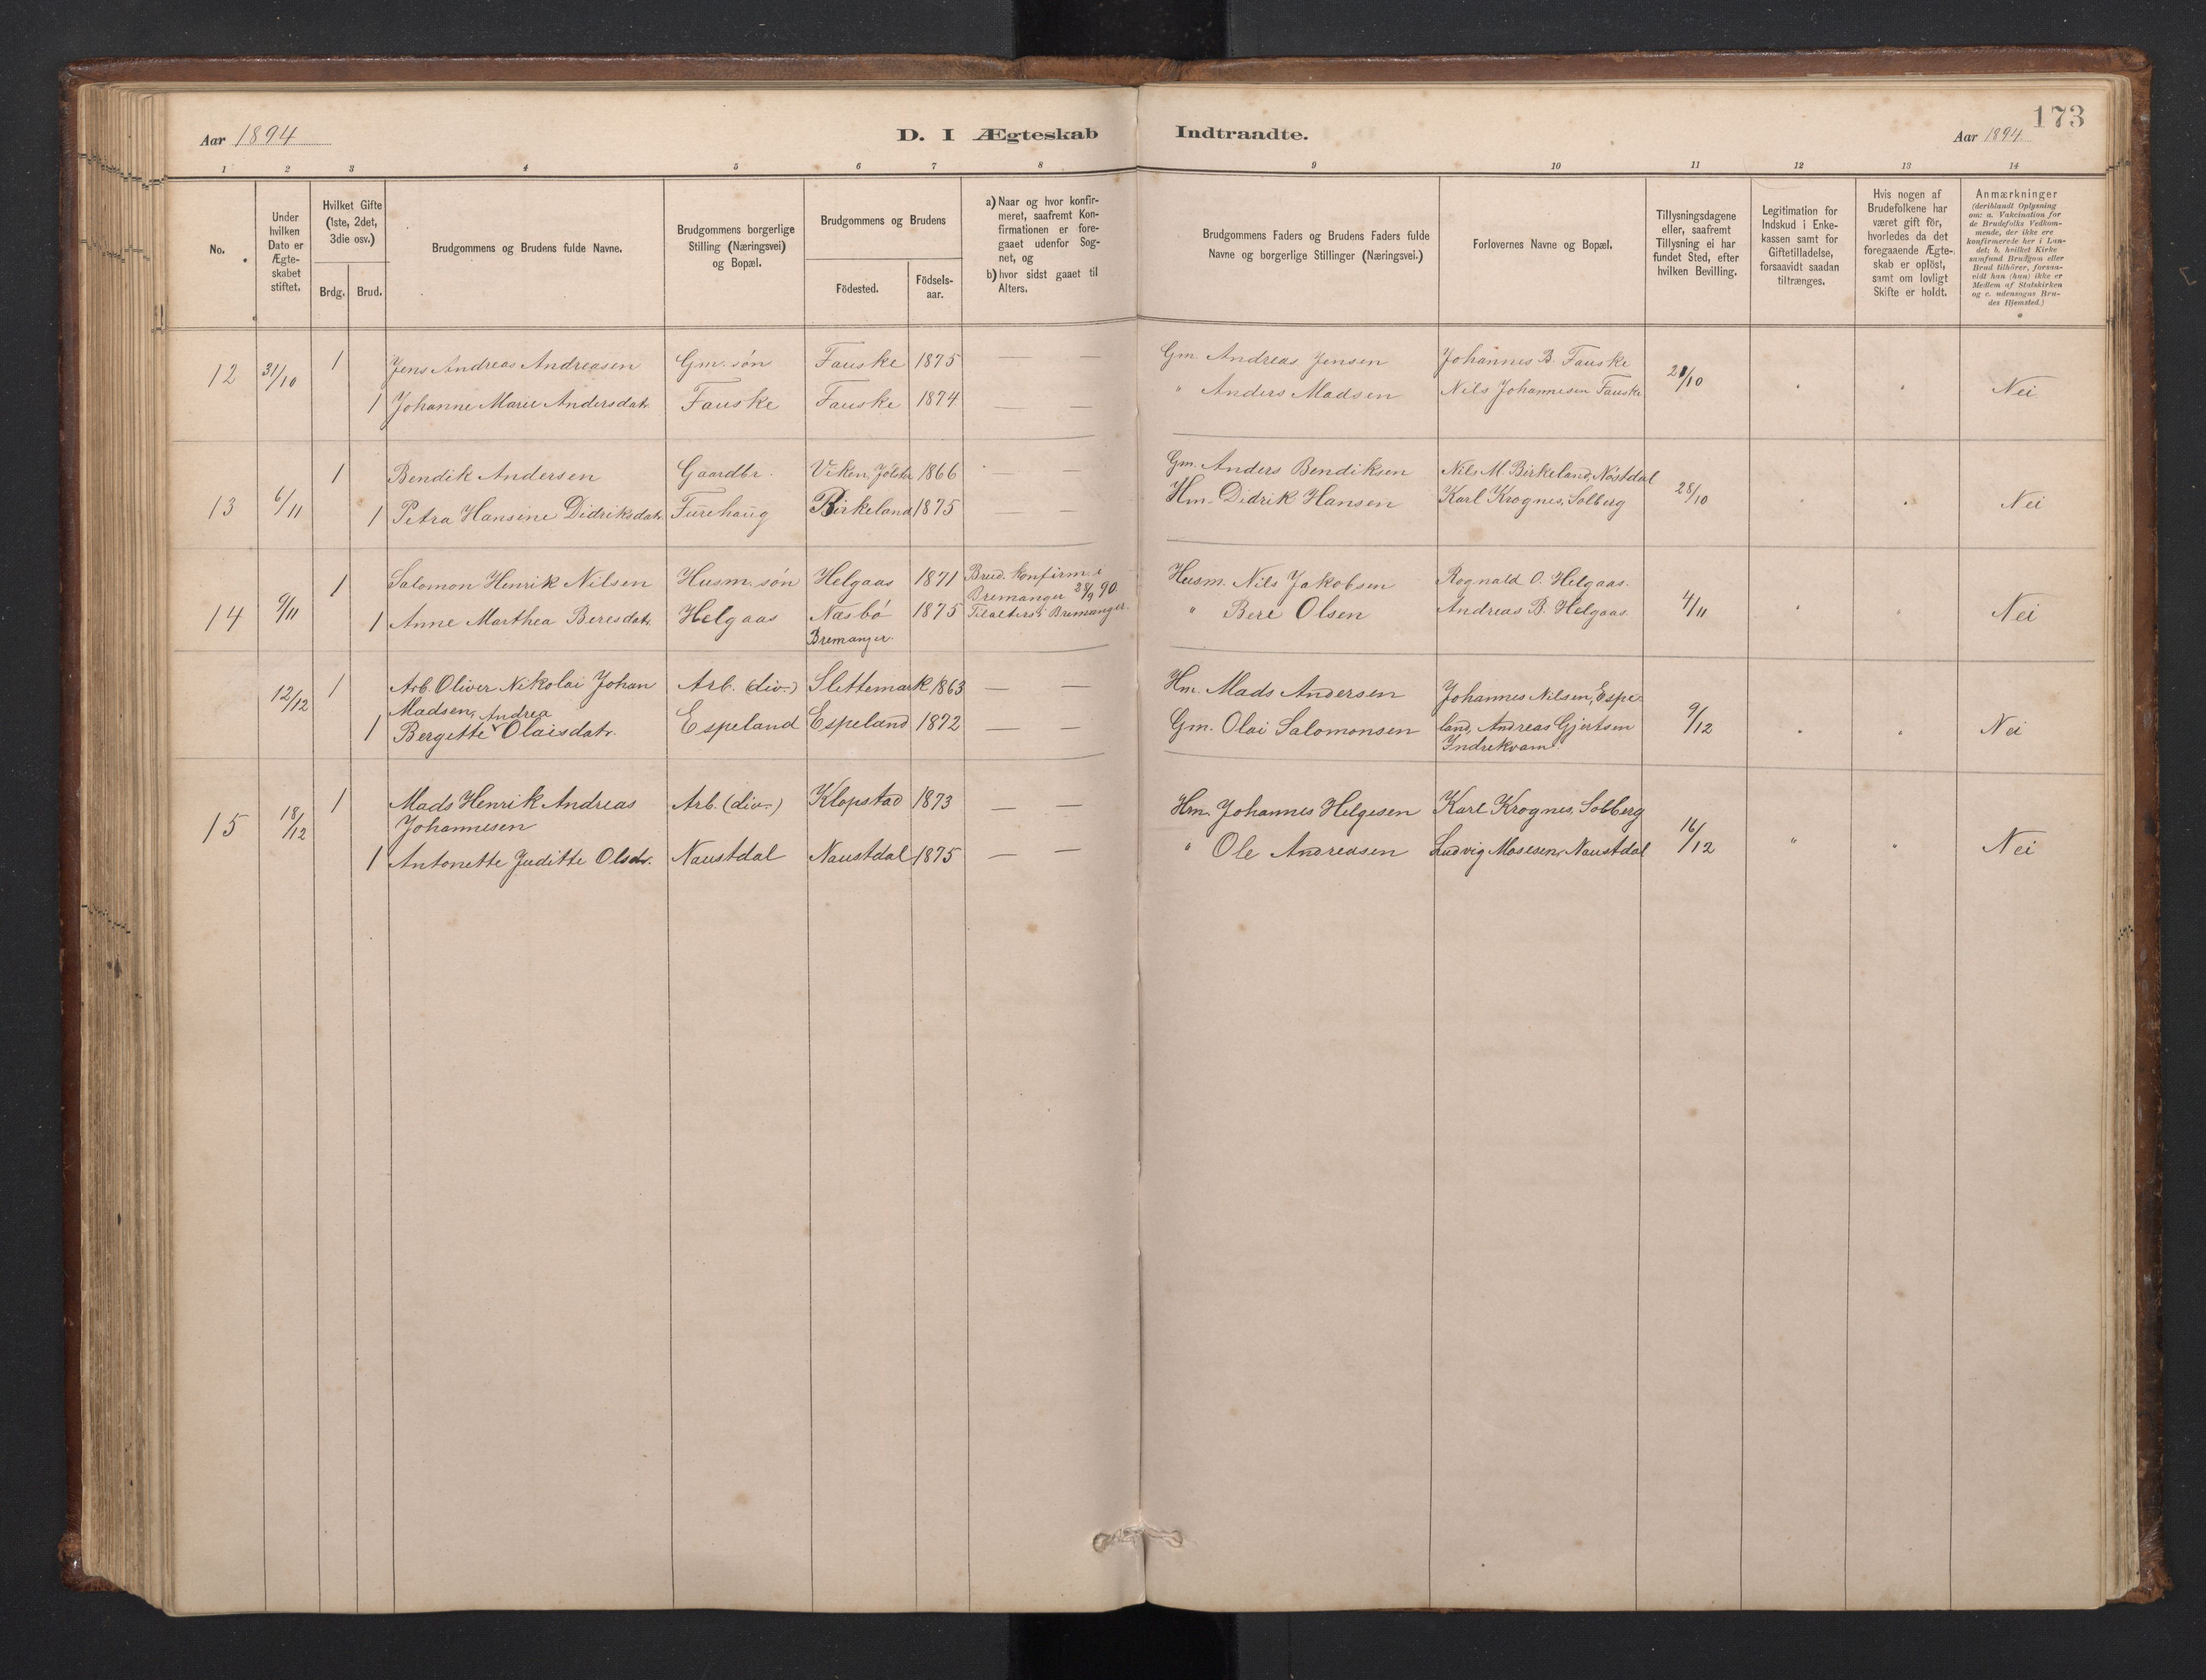 173
Aar 1894
D. I Ægteskab Indtraadte.
Aar 1894
1 2 3 4 5 6 7 8 9 10 11 12 13 14
No.
Under hvilken Dato er Ægte-skabet stiftet.
Hvilket Gifte (1ste, 2det, 3die osv.)
Brdg. Brud.
Brudgommens og Brudens fulde Navne.
Brudgommens borgerlige Stilling (Næringsvei) og Bopæl.
Brudgommens og Brudens
Födested. Födsels-aar.
a) Naar og hvor konfir-meret, saafremt Kon-firmationen er fore-gaaet udenfor Sog-net, og
b) hvor sidst gaaet til Alters.
Brudgommens Faders og Brudens Faders fulde Navne og borgerlige Stillinger (Næringsvei.)
Forlovernes Navne og Bopæl.
Tillysningsdagene eller, saafremt Tillysning ei har fundet Sted, efter hvilken Bevilling.
Legitimation for Indskud i Enke-kassen samt for Giftetilladelse, forsaavidt saadan tiltrænges.
Hvis nogen af Brudefolkene har været gift för, hvorledes da det foregaaende Ægte-skab er oplöst, samt om lovligt Skifte er holdt.
Anmærkninger
(deriblandt Oplysning om: a. Vakcination for de Brudefolks Vedkom-mende, der ikke ere konfirmerede her i Lan-det; b. hvilket Kirke-samfund Brudgom eller Brud tilhörer, forsaa-vidt han (hun) ikke er Medlem af Statskirken og c. udensogns Bru-des Hjemsted.)
12 31/10 1 Jens Andreas Andreasen Gm. søn Fauske 1875 — — Gm. Andreas Jensen Johannes B. Fauske
1 Johanne Marie Andersdatr. Fauske Fauske 1874 — — " Anders Madsen Nils Johannesen Fauske 21/10 " " Nei
13 6/11 1 Bendik Andersen Gaardbr. Viken, Jølster 1866 — — Gm. Anders Bendiksen Nils M. Birkeland, Nøstdal
1 Petra Hansine Didriksdatr. Furehaug Birkeland 1875 — — Hm. Didrik Hansen Karl Krognes, Solberg 28/10 " " Nei
14 9/11 1 Salomon Henrik Nilsen Husm. søn Helgaas 1871 Brud. konfirm. i Bremanger 28/9 90. Husm. Nils Jakobsen Rognald O. Helgaas.
1 Anne Marthea Beresdatr. Helgaas Næsbø Bremanger. 1875 Tilalters i Bremanger. " Bere Olsen Andreas B. Helgaas. 4/11 " " Nei
12/12 1 Arb. Oliver Nikolai Johan Madsen, Arb. (div.) Slettemark 1863 — — Hm. Mads Andersen Johannes Nilsen, Espe-
1 Bergitte Andrea Olaisdatr. Espeland Espeland 1872 — — Gm. Olai Salomonsen land, Andreas Gjertsen Indrekvam. 9/12 " " Nei
15 18/12 1 Mads Henrik Andreas Johannesen Arb. (div.) Klopstad 1873 — — Hm. Johannes Helgesen Karl Krognes, Solberg
1 Antonette Juditte Olsdr. Naustdal Naustdal 1875 — — " Ole Andreasen Ludvig Mosesen, Naustdal 16/12 " " Nei